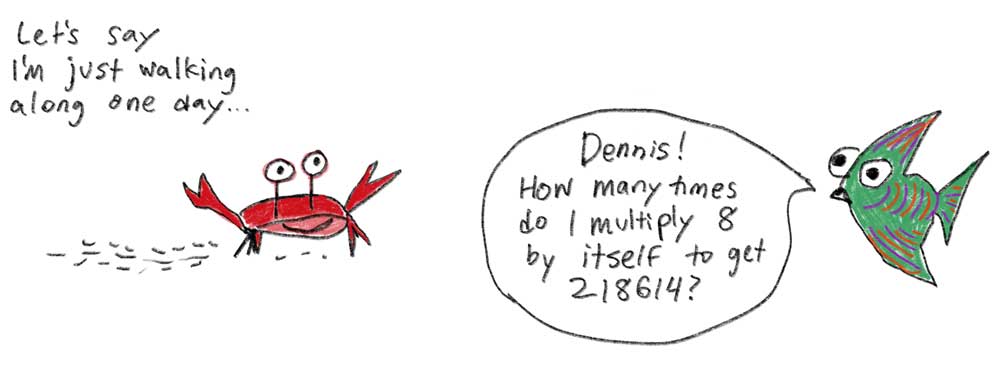 Let's say
I'm just walking
along one day...
Dennis!
How many times
do I multiply 8
by itself to get
218614?